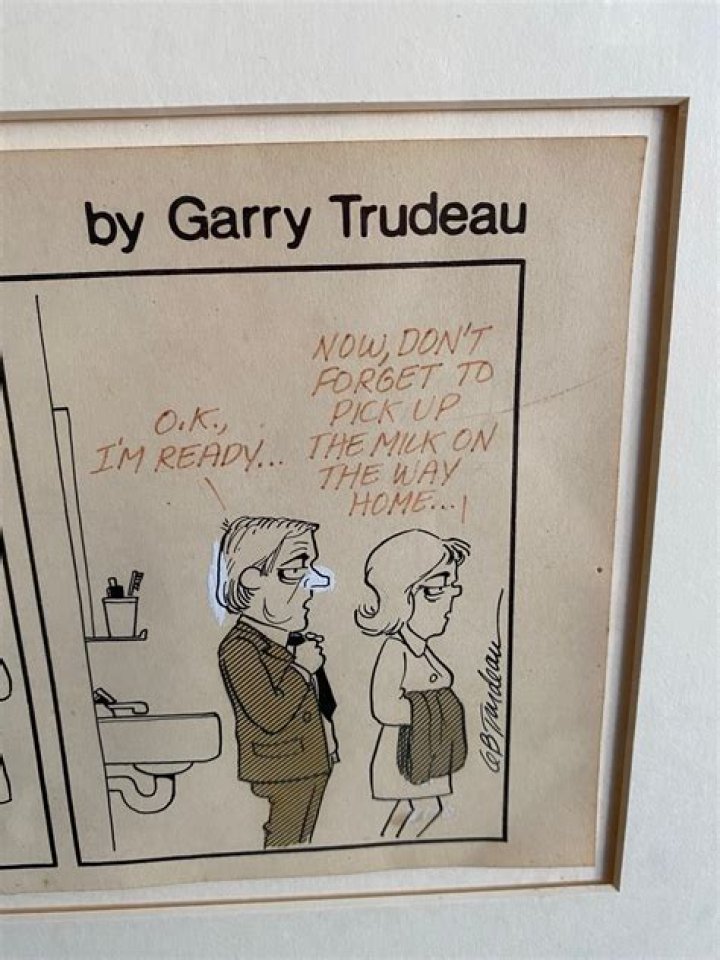 by Garry Trudeau
O.K.,
I'M READY...
NOW, DON'T
FORGET TO
PICK UP
THE MILK ON
THE WAY
HOME...
GB Trudeau